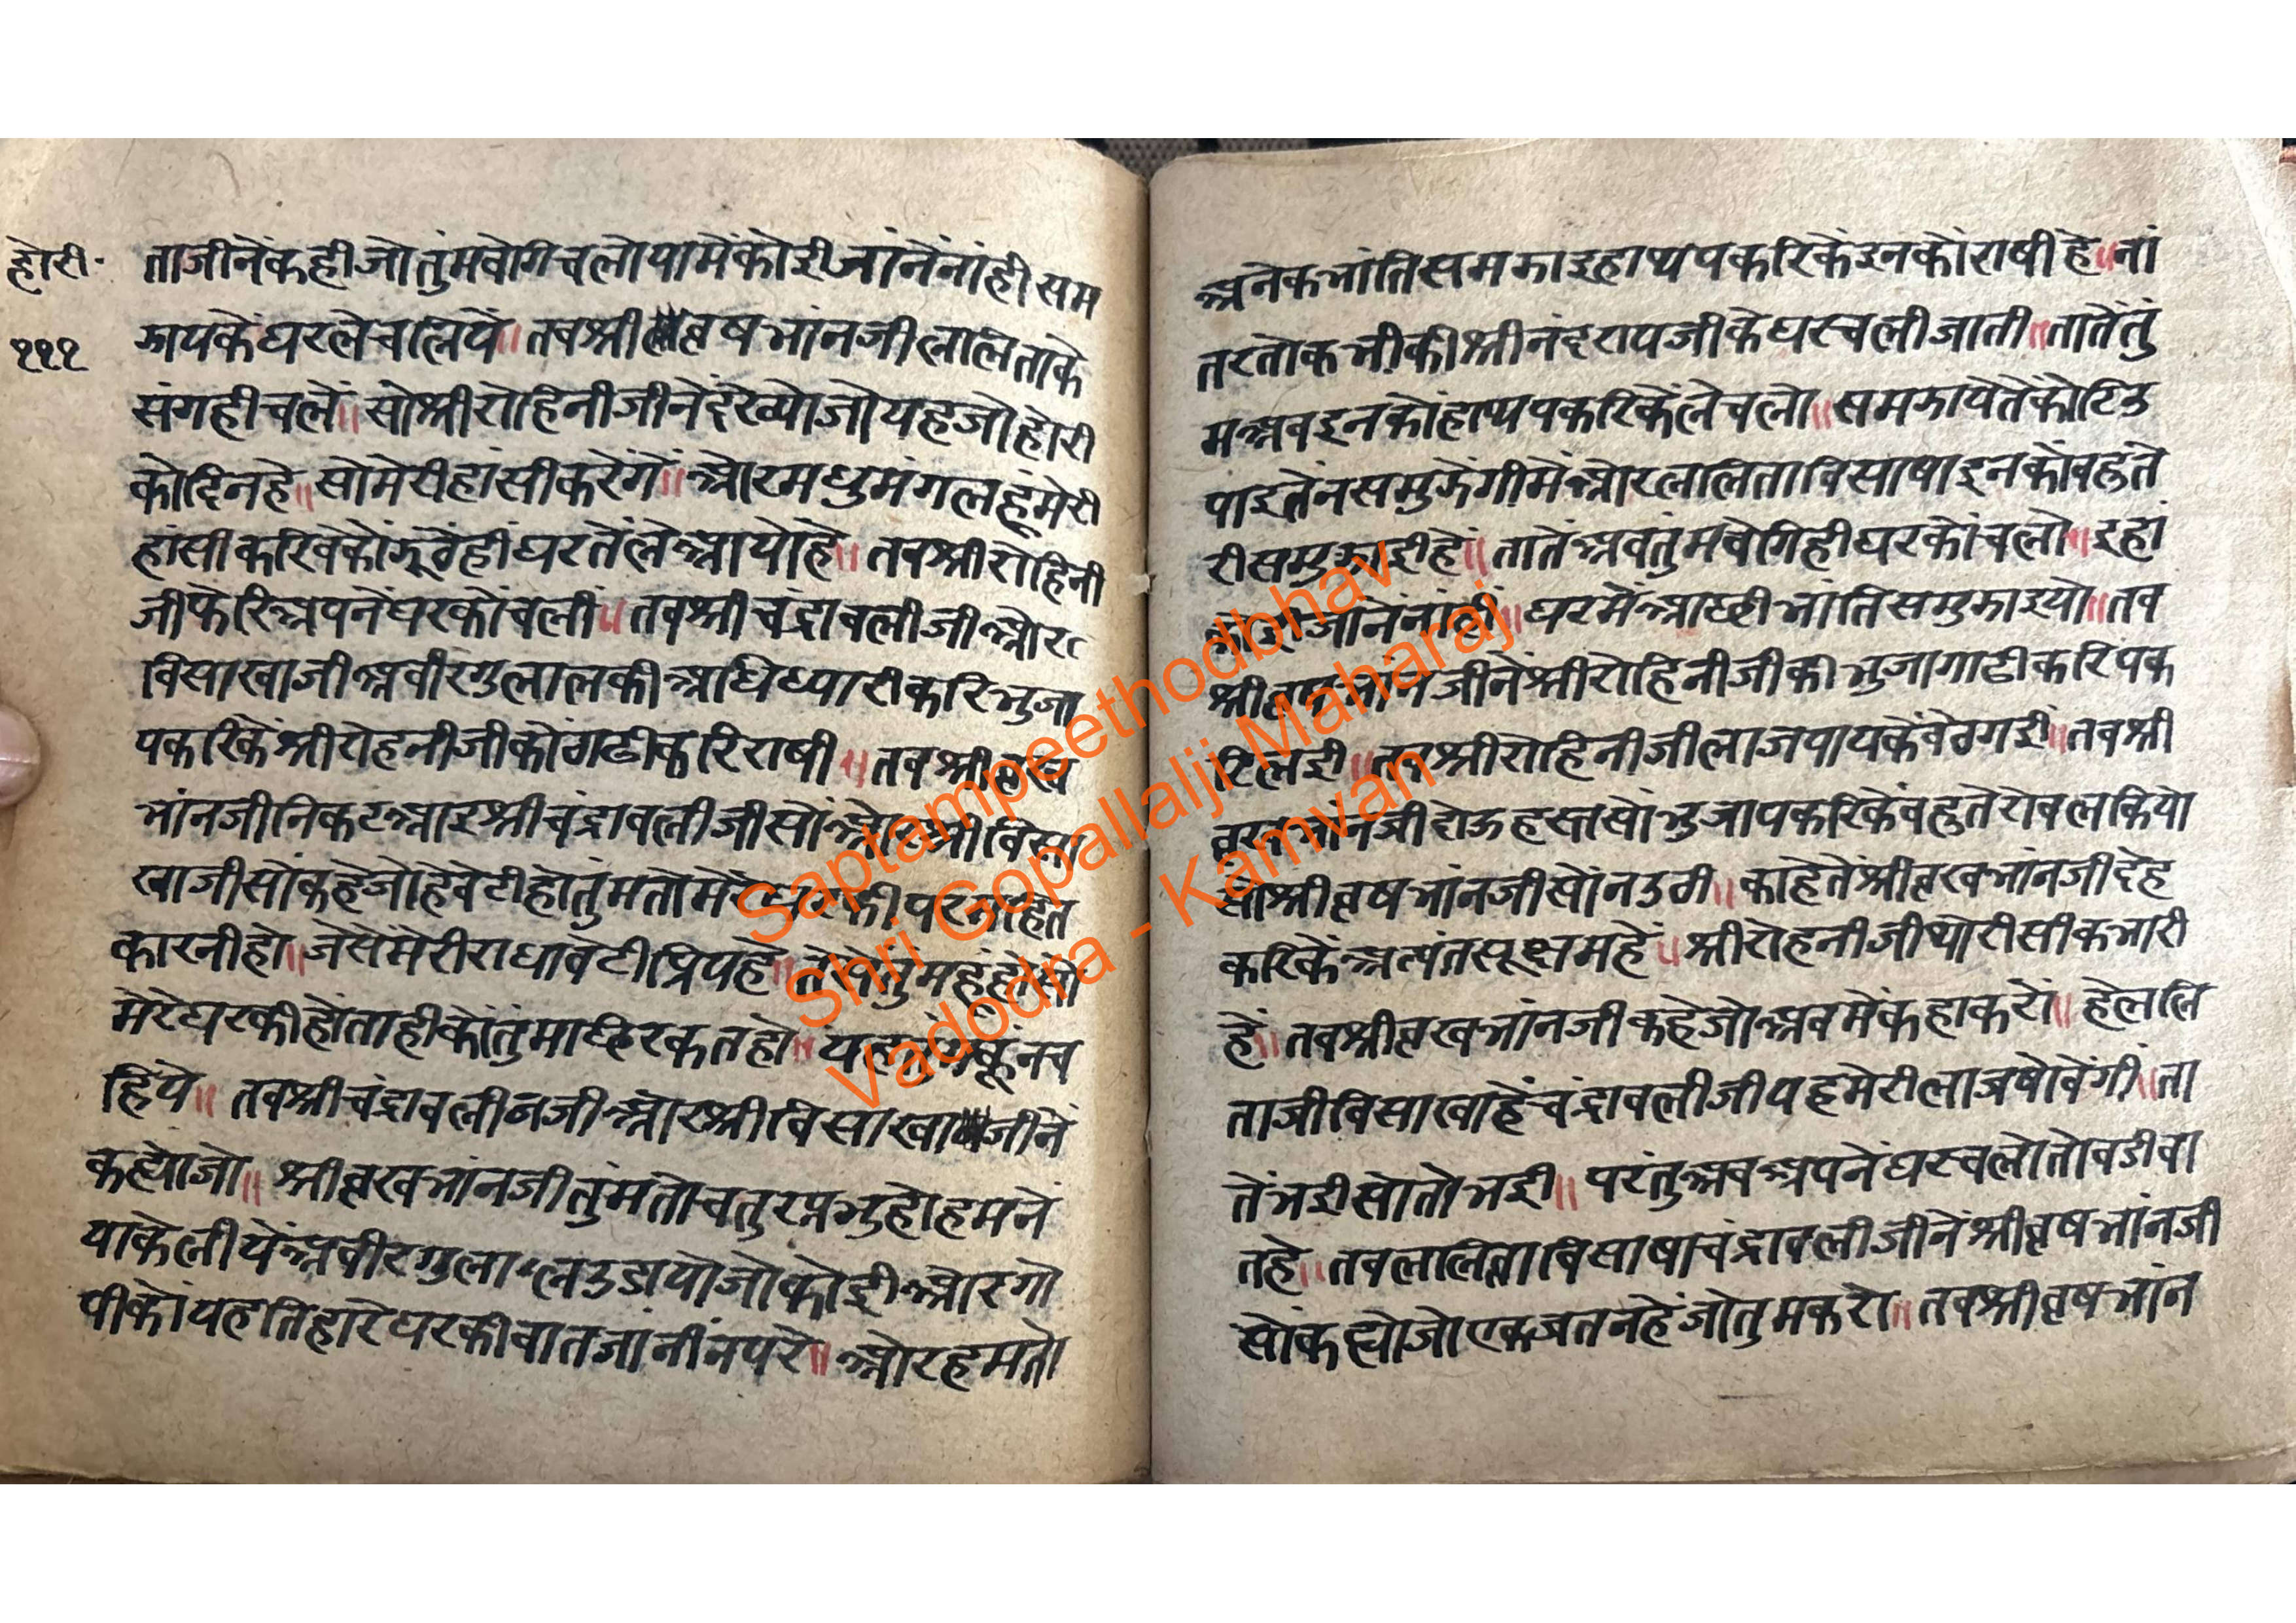 होरी॰
१११
ताजीनेंकहीजोतुंमवेगिचलोयामेंकोईजांनेंनांहीसम
झायकेंघरलेचलिये॥तवश्रीव्रषभांनजीललिताके
संगहीचलें॥सोश्रीरोहिनीजीनेंदेख्योजोयहजोहोरी
कोदिनहे॥सोमेरीहांसीकरेंगें॥ओरमधुमंगलहूंमेरी
हांसीकरिवेकोंझूठेंहींघरतेंलेआयोहे॥तवश्रीरोहिनी
जीफेरिअपनेंघरकोंचलीं॥तवश्रीचंद्रावलीजीओर
विसाखाजीअवीरगुलालकीअधिध्यारीकरिभुजा
पकरिकेंश्रीरोहनीजीकोंगाढीकरिराषी॥तवश्रीव्रख
भांनजीनिकटआइश्रीचंद्रावलीजीसोंओरश्रीविसा
खाजीसोंकहेजोहेवेटीहोतुंमतोमेरेघरकीपरमहित
कारनीहो॥जेसेमेरीराधावेटीप्रियहे॥तेसेतुंमहूंहोसो
मेरेघरकीहोंताहीकोंतुंमाछिरकतहो॥यहतुंमकूंनच
हिये॥तवश्रीचंद्रावलीनजीओरश्रीविसाखाजीनें
कह्योजो॥श्रीव्रखभांनजीतुंमतोचतुरप्रभुहोहमनें
याकेलीयेंअवीरगुलालउडायोजोकोईओरगो
पीकोंयहतिहारेघरकीवातजांनींनपरे॥ओरहमतो
अनेकभांतिसमझाइहाथपकरिकेंइनकोंराषीहे॥नां
तरतोकभीकीश्रीनंदरायजीकेघरचलीजाती॥तातेंतुं
मअवइनकोंहाथपकरिकेंलेचलो॥समझायेतेंकोटिउ
पांइतेंनसमुझेंगीमेंओरललिताविसाषाइनकोंवहुते
रीसमुझाईहे॥तातेंअवतुंमवेगिहीघरकोंचलो॥इहां
कोईजांनेनांही॥घरमेंआछीभांतिसमुझाइयो॥तव
श्रीव्रषभांनजीनेंश्रीरोहिनीजीकीभुजागाढीकरिपक
रिलई॥तवश्रीरोहिनीजीलाजपायकेंवेठगई॥तवश्री
व्रखभांनजीदोऊहस्तसोंभुजापकरिकेंवहुतेरोवलकियो
सोश्रीव्रषभांनजीसोंनउठी॥काहेतेंश्रीव्रखभांनजीदेह
करिकेंअत्यंतसूक्षमहें॥श्रीरोहनीजीथोरीसीकभारी
हें॥तवश्रीव्रखभांनजीकहेजोअवमेंकहाकरों॥हेललि
ताजीविसाखाहेंचंद्रावलीजीयहमेरीलाजषोवेंगी॥ता
तेंभईसोतोभई॥परंतुअवअपनेंघरचलोतोवडीवा
तहे॥तवललिताविसाषाचंद्रावलीजीनेंश्रीव्रषभांनजी
सोंकह्योजोएकजतनहेंजोतुमकरो॥तवश्रीव्रषभांन
Saptampeethodbhav
Shri Gopallalji Maharaj
Vadodra - Kamvan